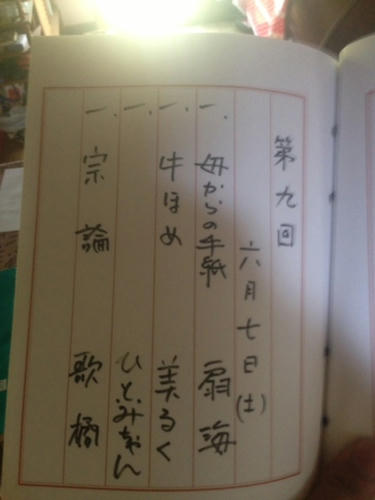 第九回
六月七日(土)
一、母からの手紙 扇海
一、牛ほめ 美るく
一、 ひとみちゃん
一、宗論 歌橘